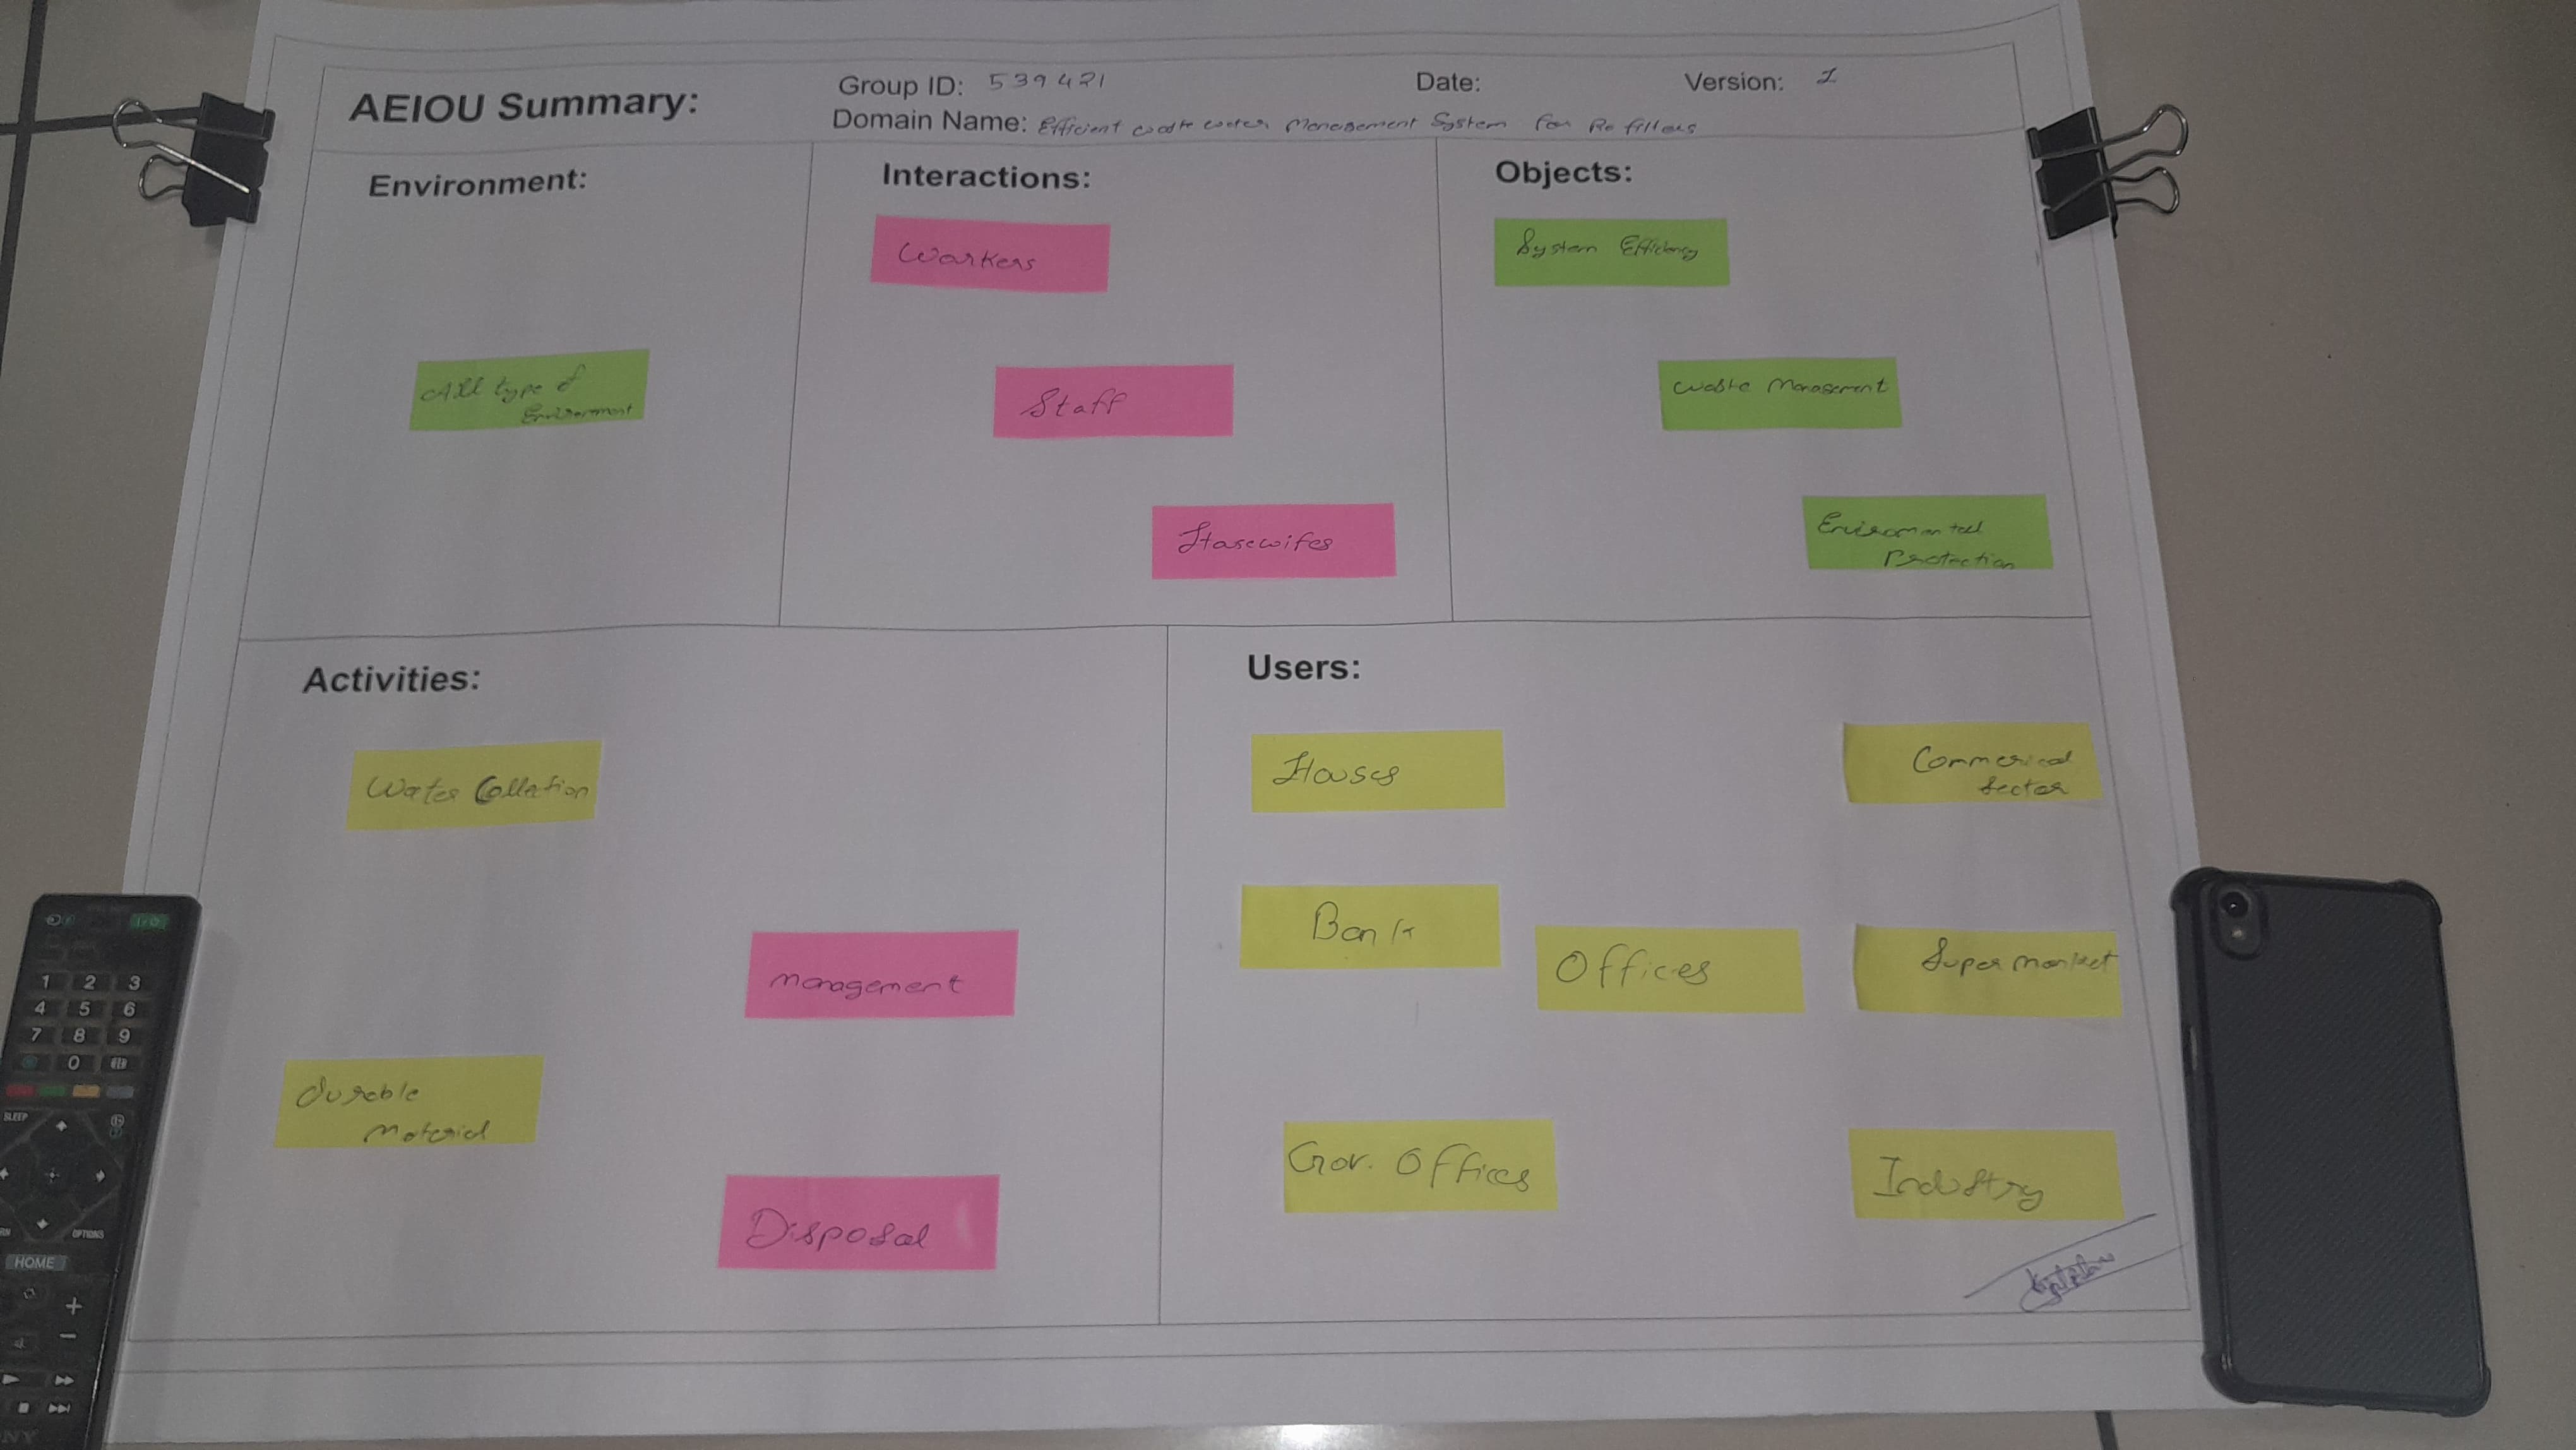 AEIOU Summary:
Group ID: 539421
Date:
Version: 1
Domain Name: Efficient waste water Management System for Ro filters
Environment:
All type of
Environment
Interactions:
Workers
Staff
Hasewifes
Objects:
System Efficiency
Waste Management
Enviromental
Protection
Activities:
Water Collection
Management
Durable
Material
Disposal
Users:
Houses
Commerical
Sector
Bank
Offices
Super Market
Gov. Offices
Industry
1 2 3
4 5 6
7 8 9
0
SLEEP
OPTIONS
HOME